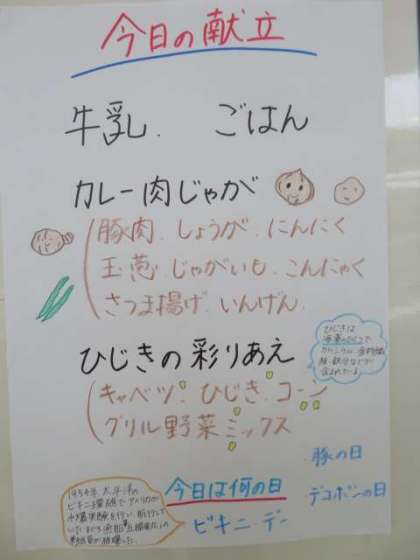 今日の献立
牛乳. ごはん
カレー肉じゃが
豚肉. しょうが. にんにく
玉葱. じゃがいも. こんにゃく
さつま揚げ. いんげん.
ひじきの彩りあえ
キャベツ. ひじき. コーン
グリル野菜ミックス
ひじきは
海藻のひとつで
カルシウム. 食物繊
維. 鉄分などが
含まれている
豚の日
今日は何の日
デコポンの日
ビキニ・デー
1954年. 太平洋の
ビキニ環礁でアメリカが
水爆実験を行い. 航行して
いたまぐろ漁船第五福竜丸の
乗組員が被爆した.